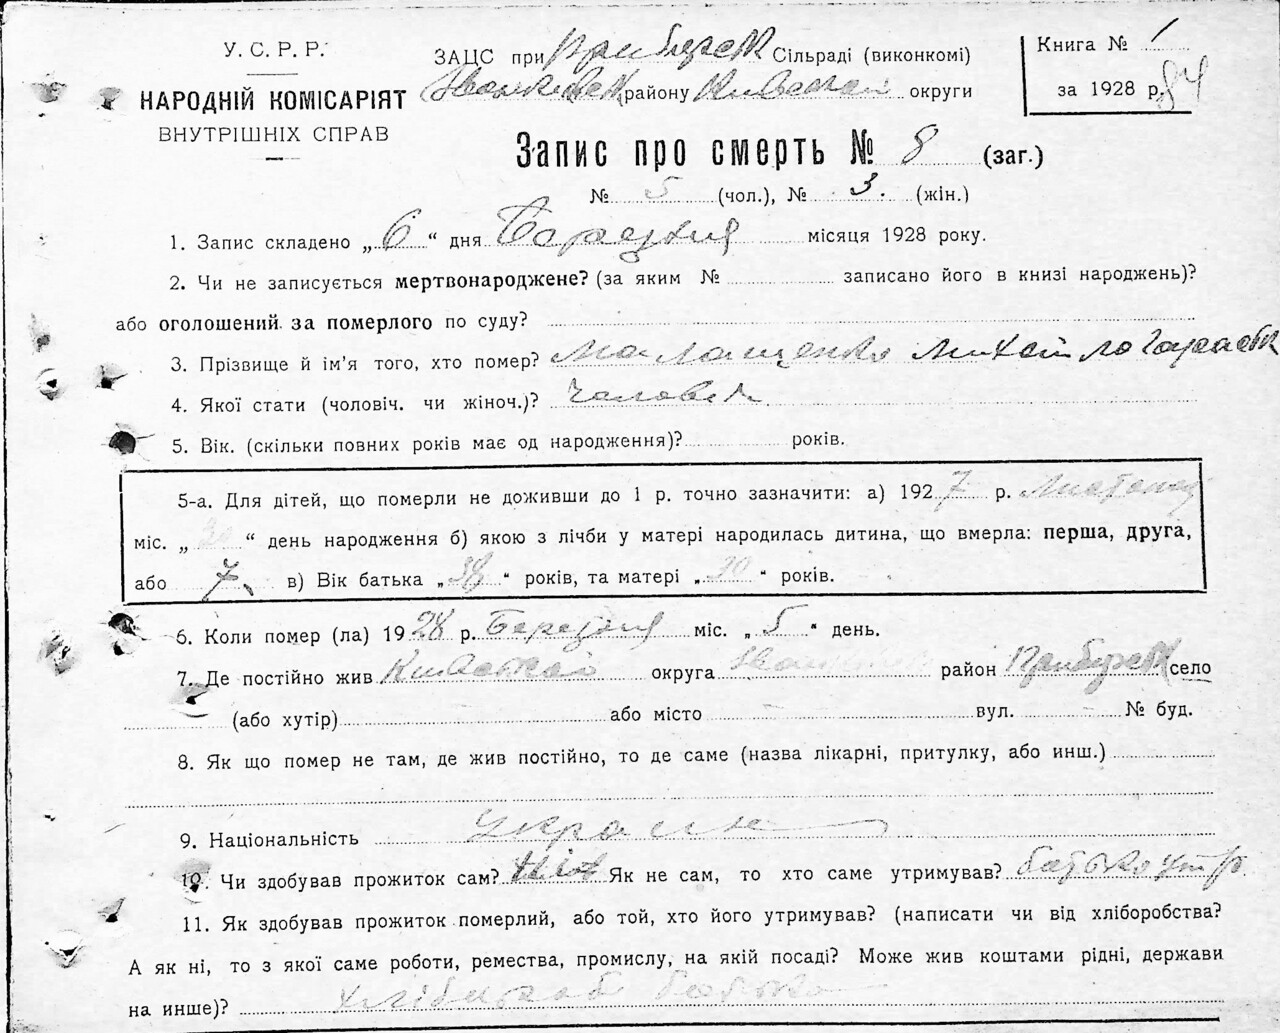 У. С. Р. Р.
НАРОДНІЙ КОМІСАРІЯТ
ВНУТРІШНІХ СПРАВ
ЗАЦС при Прибірск Сільраді (виконкомі)
району Київской округи
Книга № 1
за 1928 р. 84
Запис про смерть № 8 (заг.)
№ 5 (чол.), № 3. (жін.)
1. Запис складено „6“ дня Березня місяця 1928 року.
2. Чи не записується мертвонароджене? (за яким № записано його в книзі народжень)?
або оголошений за померлого по суду?
3. Прізвище й ім’я того, хто помер? Малащенко Михайло
4. Якої стати (чоловіч. чи жіноч.)? Чоловеч
5. Вік. (скільки повних років має од народження)? років.
5-а. Для дітей, що померли не доживши до 1 р. точно зазначити: а) 1927 р. Листопад
міс. „20“ день народження б) якою з лічби у матері народилась дитина, що вмерла: перша, друга,
або 7. в) Вік батька „38“ років, та матері „30“ років.
6. Коли помер (ла) 1928 р. Березня міс. „5“ день.
7. Де постійно жив Київской округа район Прибірск село
(або хутір) або місто вул. № буд.
8. Як що помер не там, де жив постійно, то де саме (назва лікарні, притулку, або инш.)
9. Національність Украин
10. Чи здобував прожиток сам? Як не сам, то хто саме утримував? батько утр
11. Як здобував прожиток померлий, або той, хто його утримував? (написати чи від хліборобства?
А як ні, то з якої саме роботи, ремества, промислу, на якій посаді? Може жив коштами рідні, держави
на инше)? батька